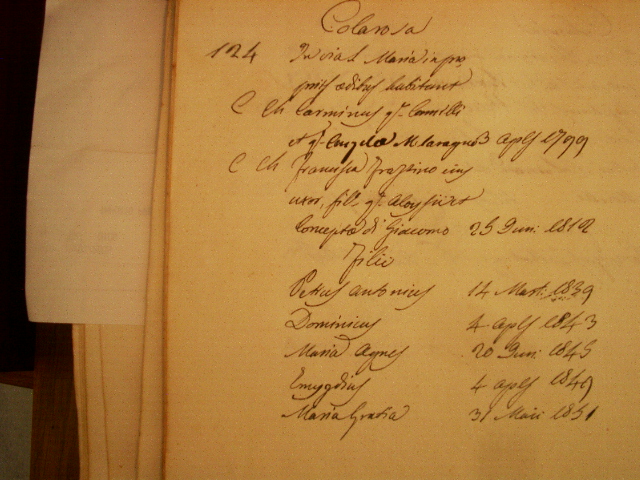 Colarosa
124 In via S. Maria in pro
priis ædibus habitant
C Ch Carminus qm Camilli
et qm Angelæ M. 3 Aplis 1799
C Ch Francisca Frattino ejus
uxor, filia qm Aloysii et
Conceptæ di Giacomo 25 Juni 1812
Filii
Petrus Antonius 14 Mart. 1839
Dominicus 4 Aplis 1843
Maria Agnes 20 Juni 1845
Emygdius 4 Aplis 1849
Maria Gratia 31 Maii 1851